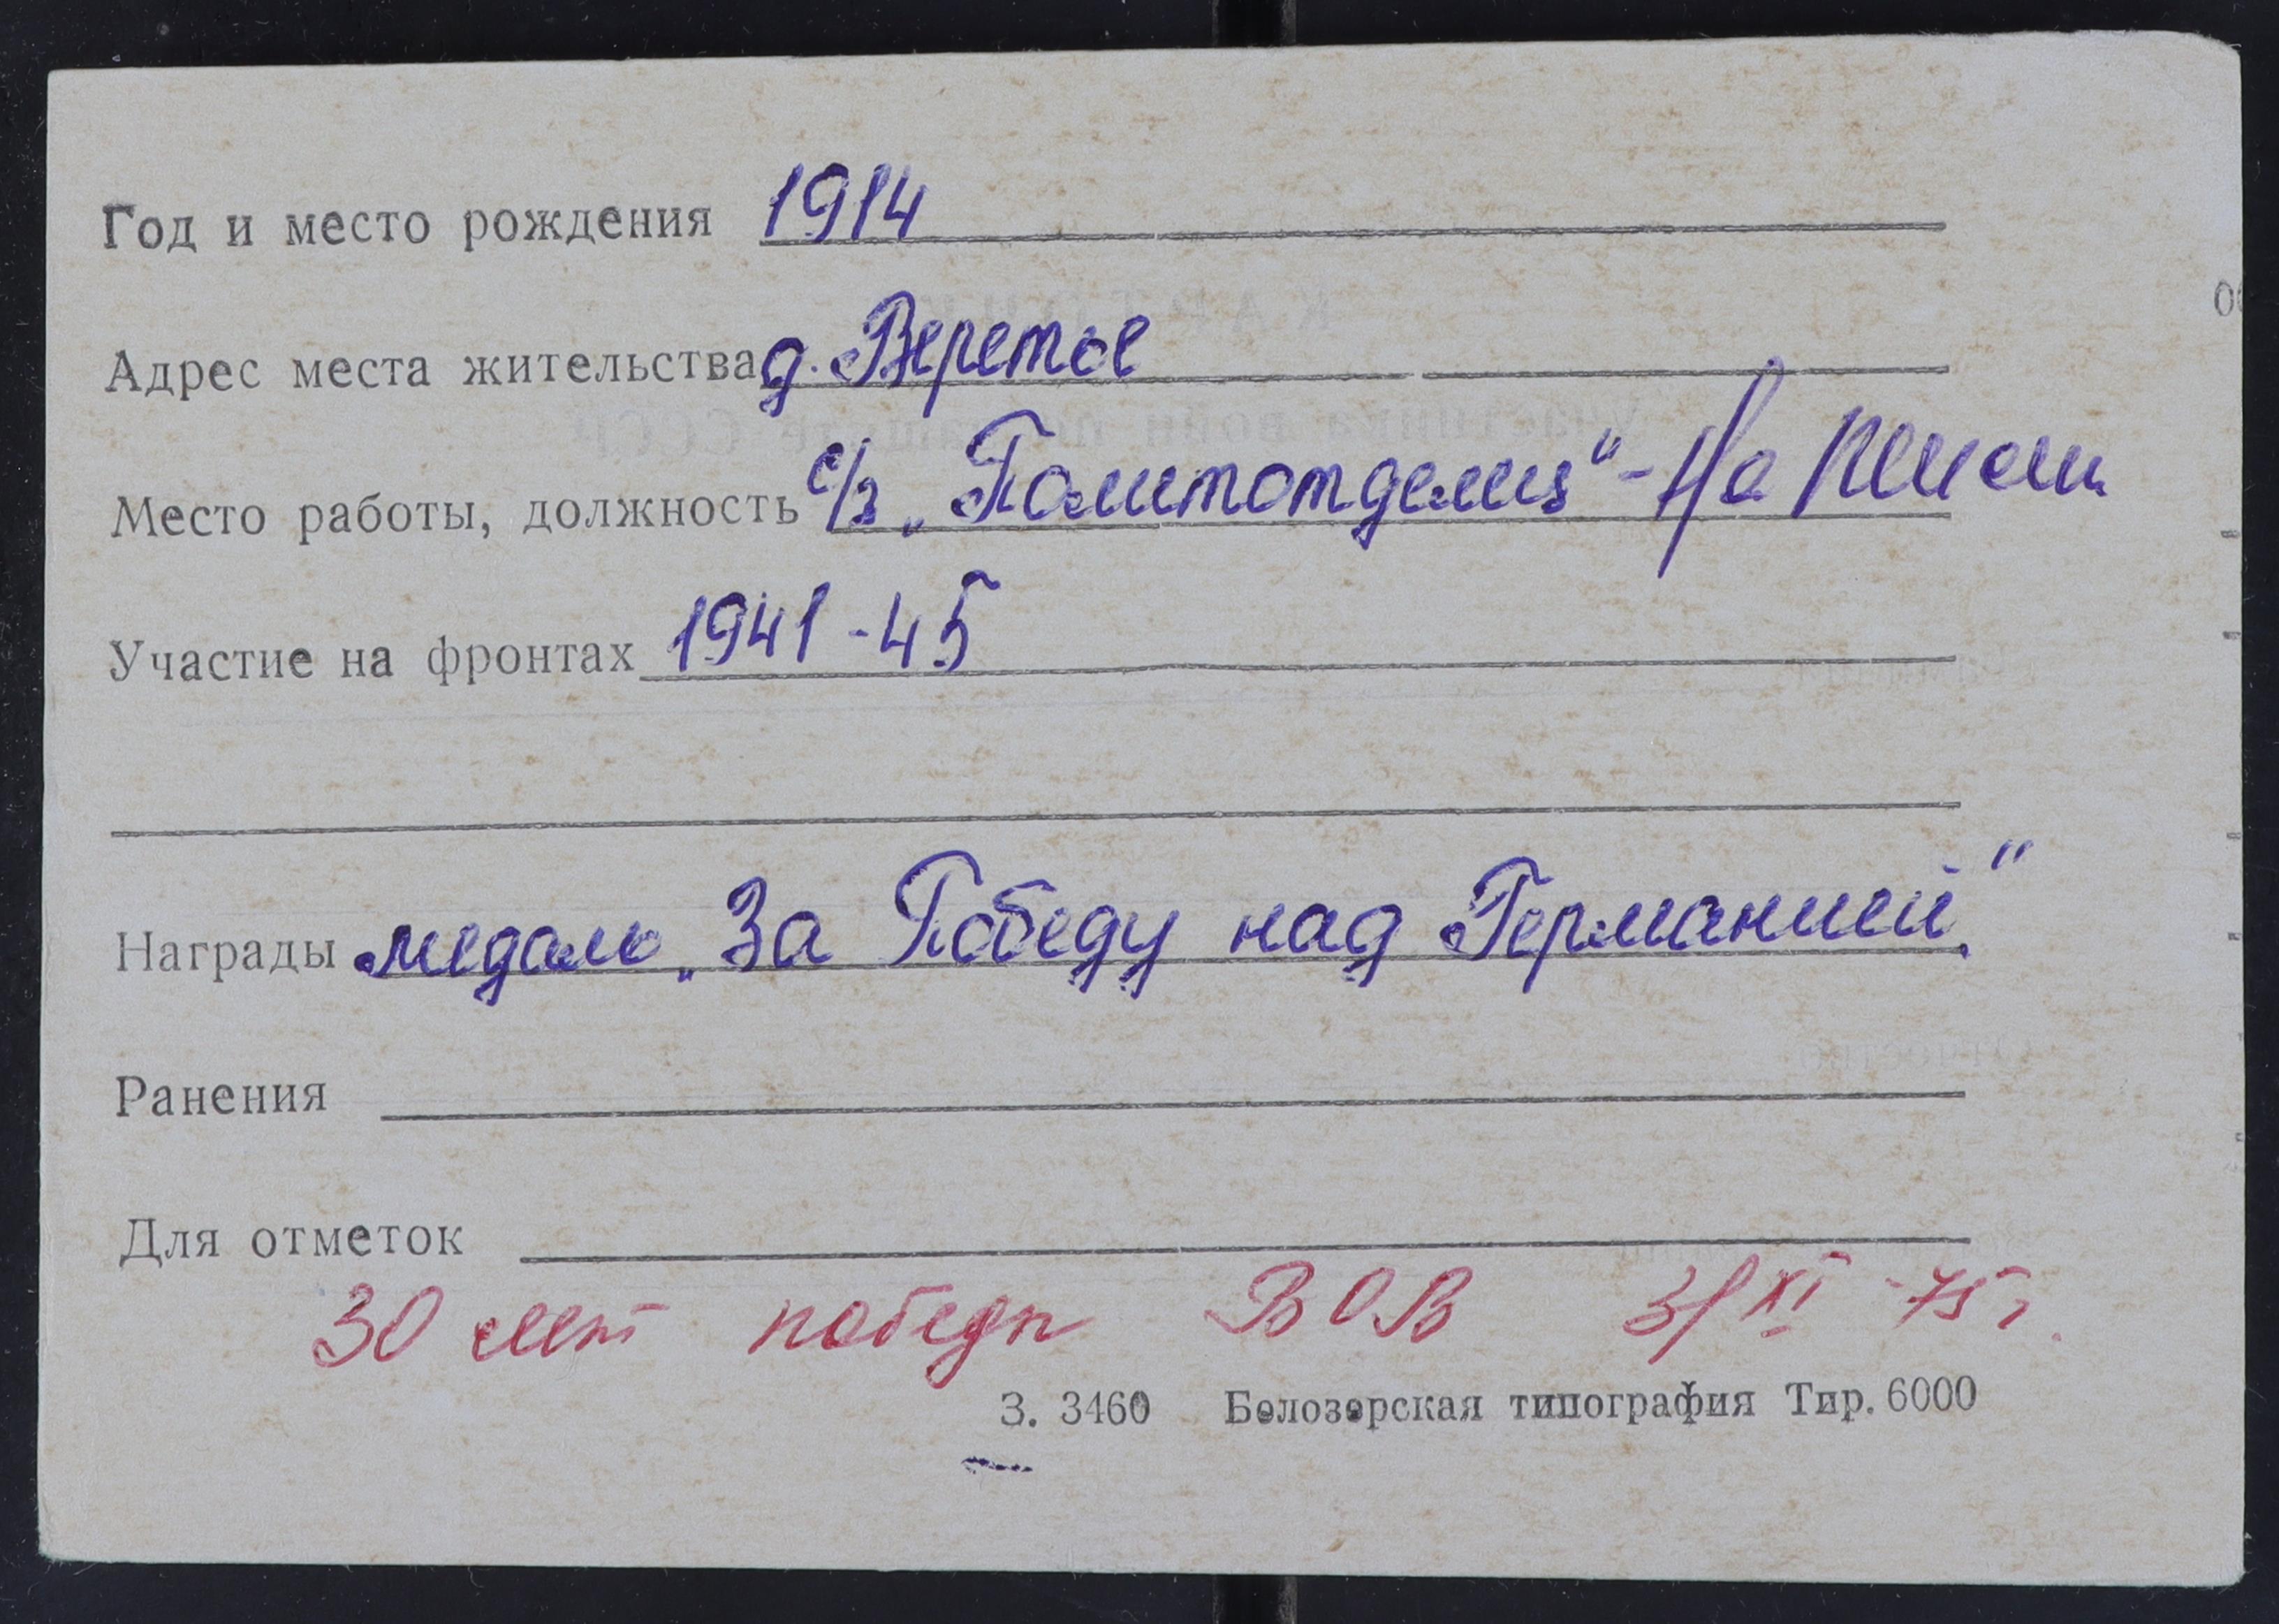 Год и место рождения 1914
Адрес места жительства д. Веретье
Место работы, должность с/з „Политотделец“ - На пенсии
Участие на фронтах 1941-45
Награды медаль „За Победу над Германией“.
Ранения
Для отметок
30 лет победы ВОВ 3/XI-75 г.
З. 3460 Белозерская типография Тир. 6000